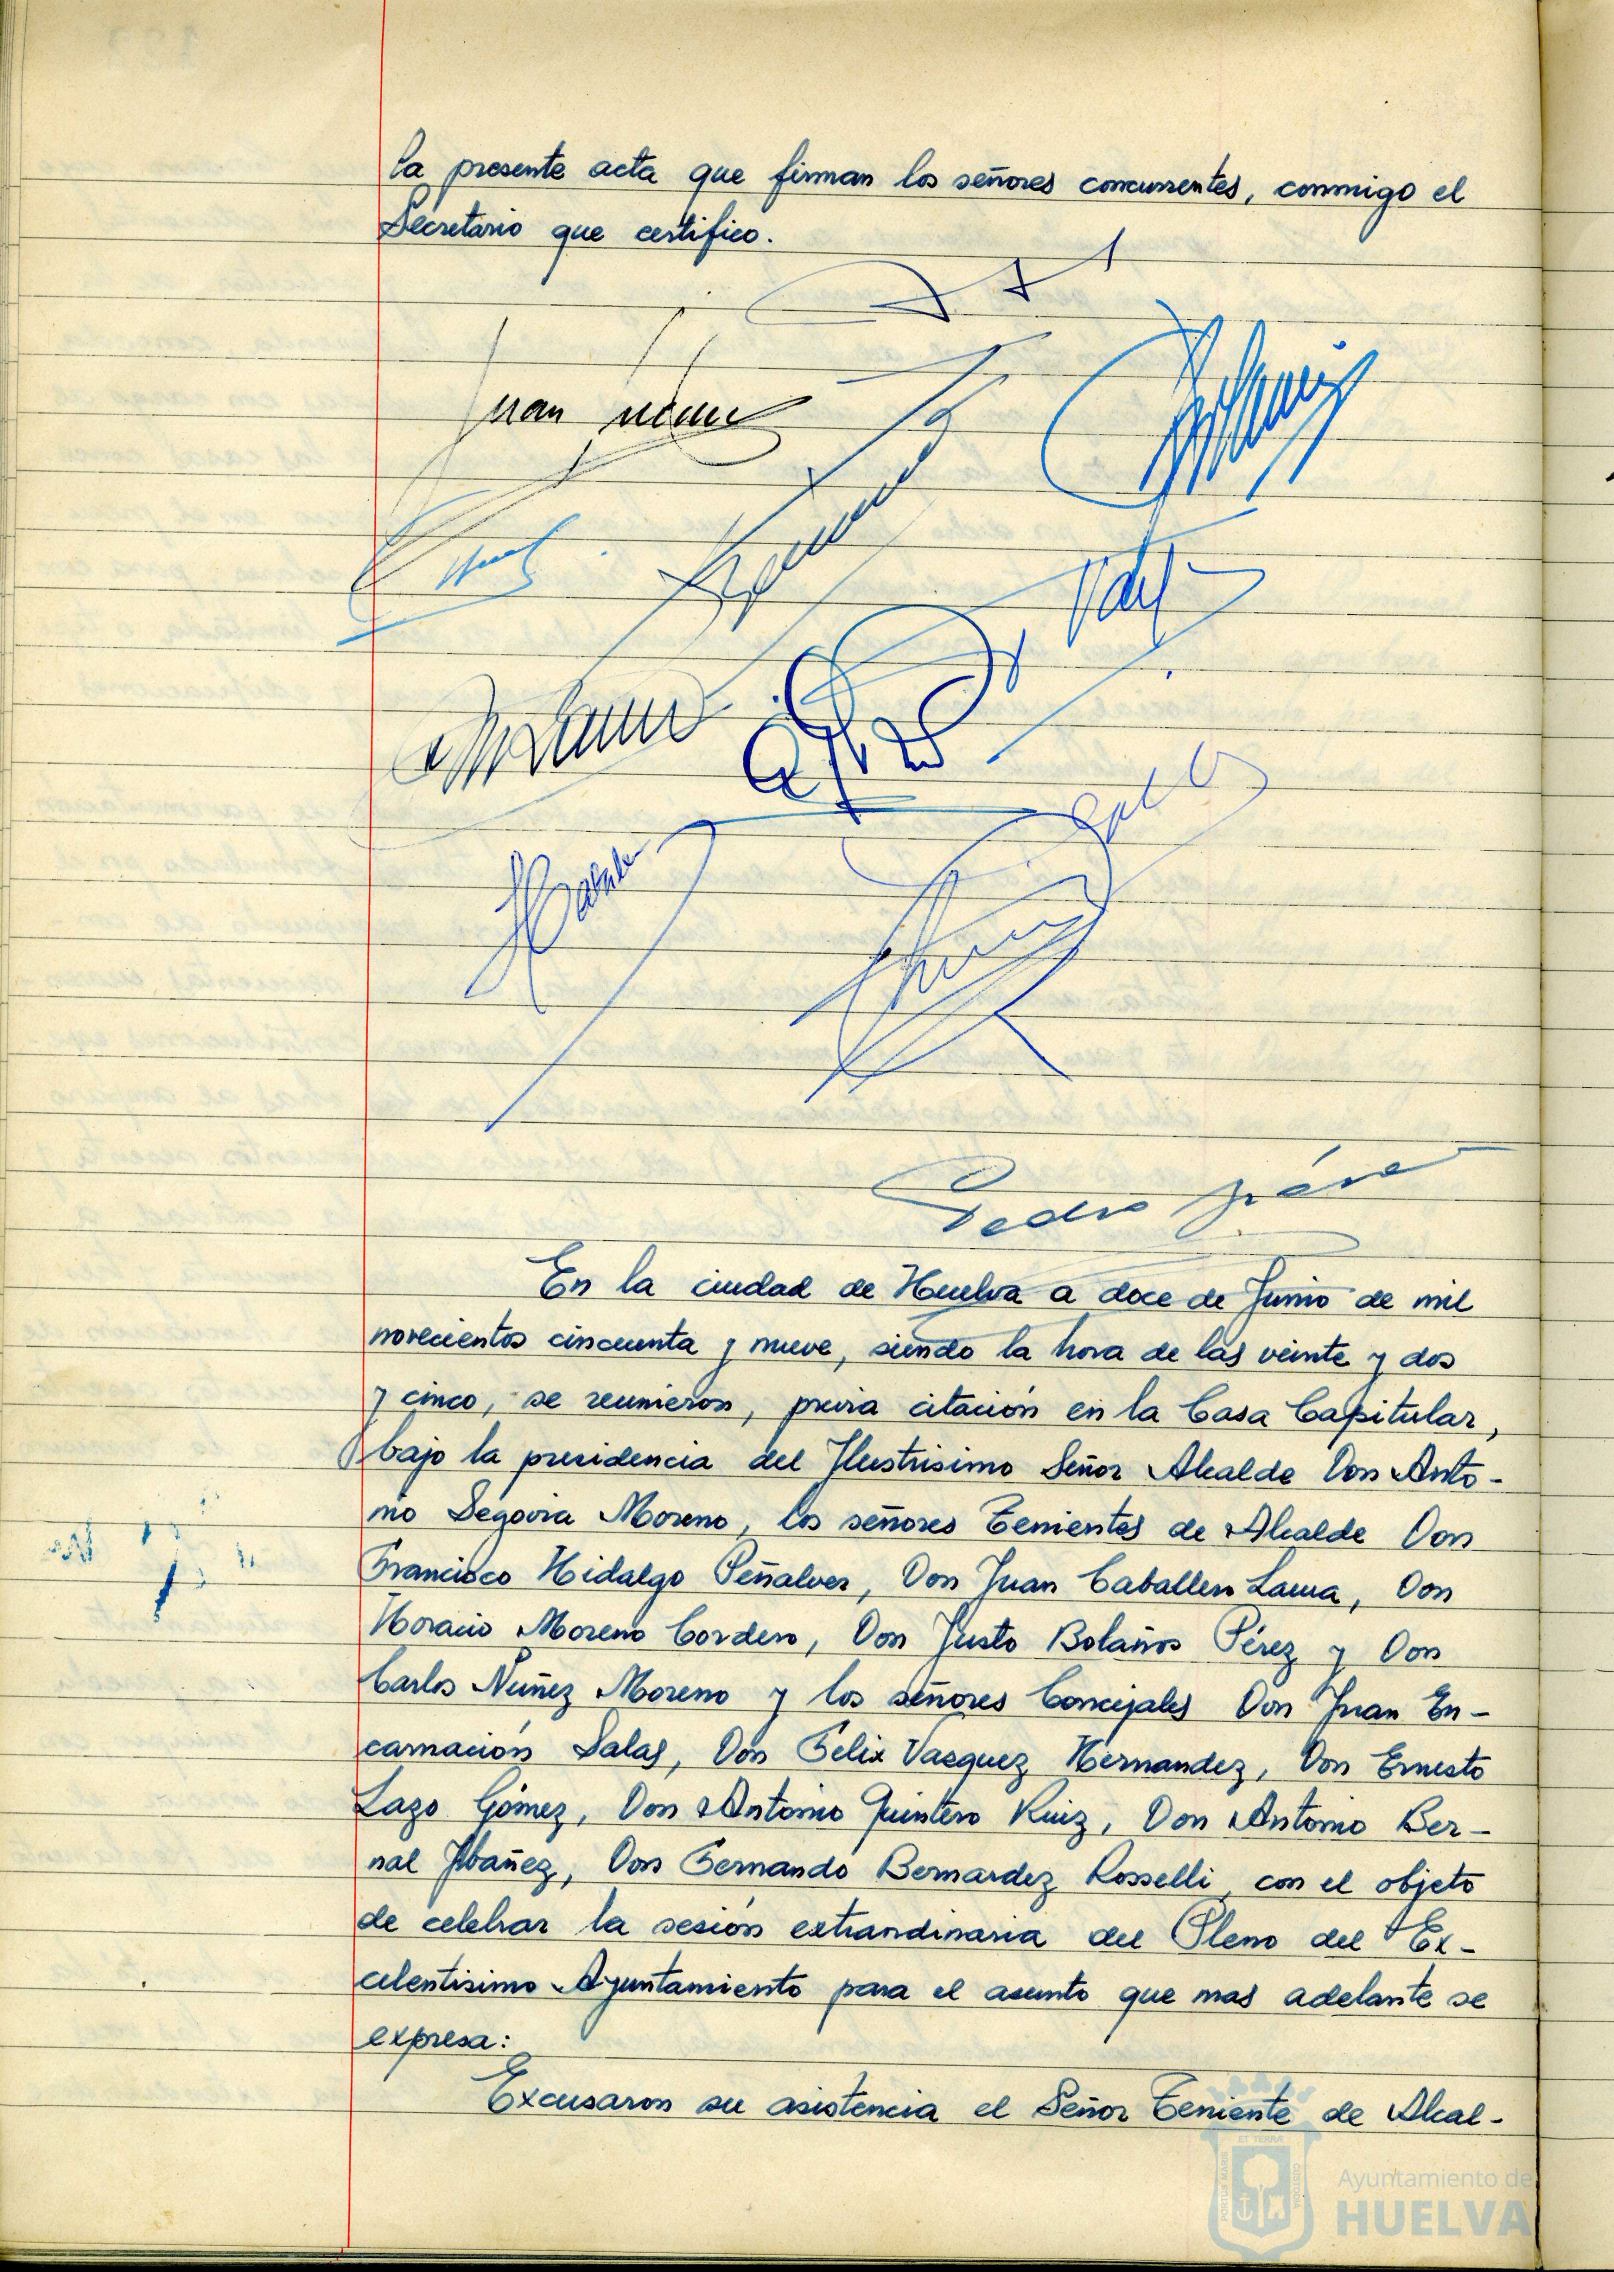 la presente acta que firman los señores concurrentes, conmigo el
Secretario que certifico.
Juan
Pedro
En la ciudad de Huelva a doce de Junio de mil
novecientos cincuenta y nueve, siendo la hora de las veinte y dos
y cinco, se reunieron, previa citación en la Casa Capitular,
bajo la presidencia del Ilustrisimo Señor Alcalde Don Anto-
nio Segovia Moreno, los señores Tenientes de Alcalde Don
Francisco Hidalgo Peñalver, Don Juan Caballero Lama, Don
Horacio Moreno Cordero, Don Justo Bolaños Pérez y Don
Carlos Nuñez Moreno y los señores Concejales Don Juan En-
carnación Salas, Don Felix Vazquez Hernandez, Don Ernesto
Lazo Gómez, Don Antonio Quintero Ruiz, Don Antonio Ber-
nal Ibañez, Don Fernando Bernardez Rosselli, con el objeto
de celebrar la sesión extraordinaria del Pleno del Ex-
celentisimo Ayuntamiento para el asunto que mas adelante se
expresa:
Excusaron su asistencia el Señor Teniente de Alcal-
PORTUS MARIS ET TERRA CUSTODIA
Ayuntamiento de
HUELVA